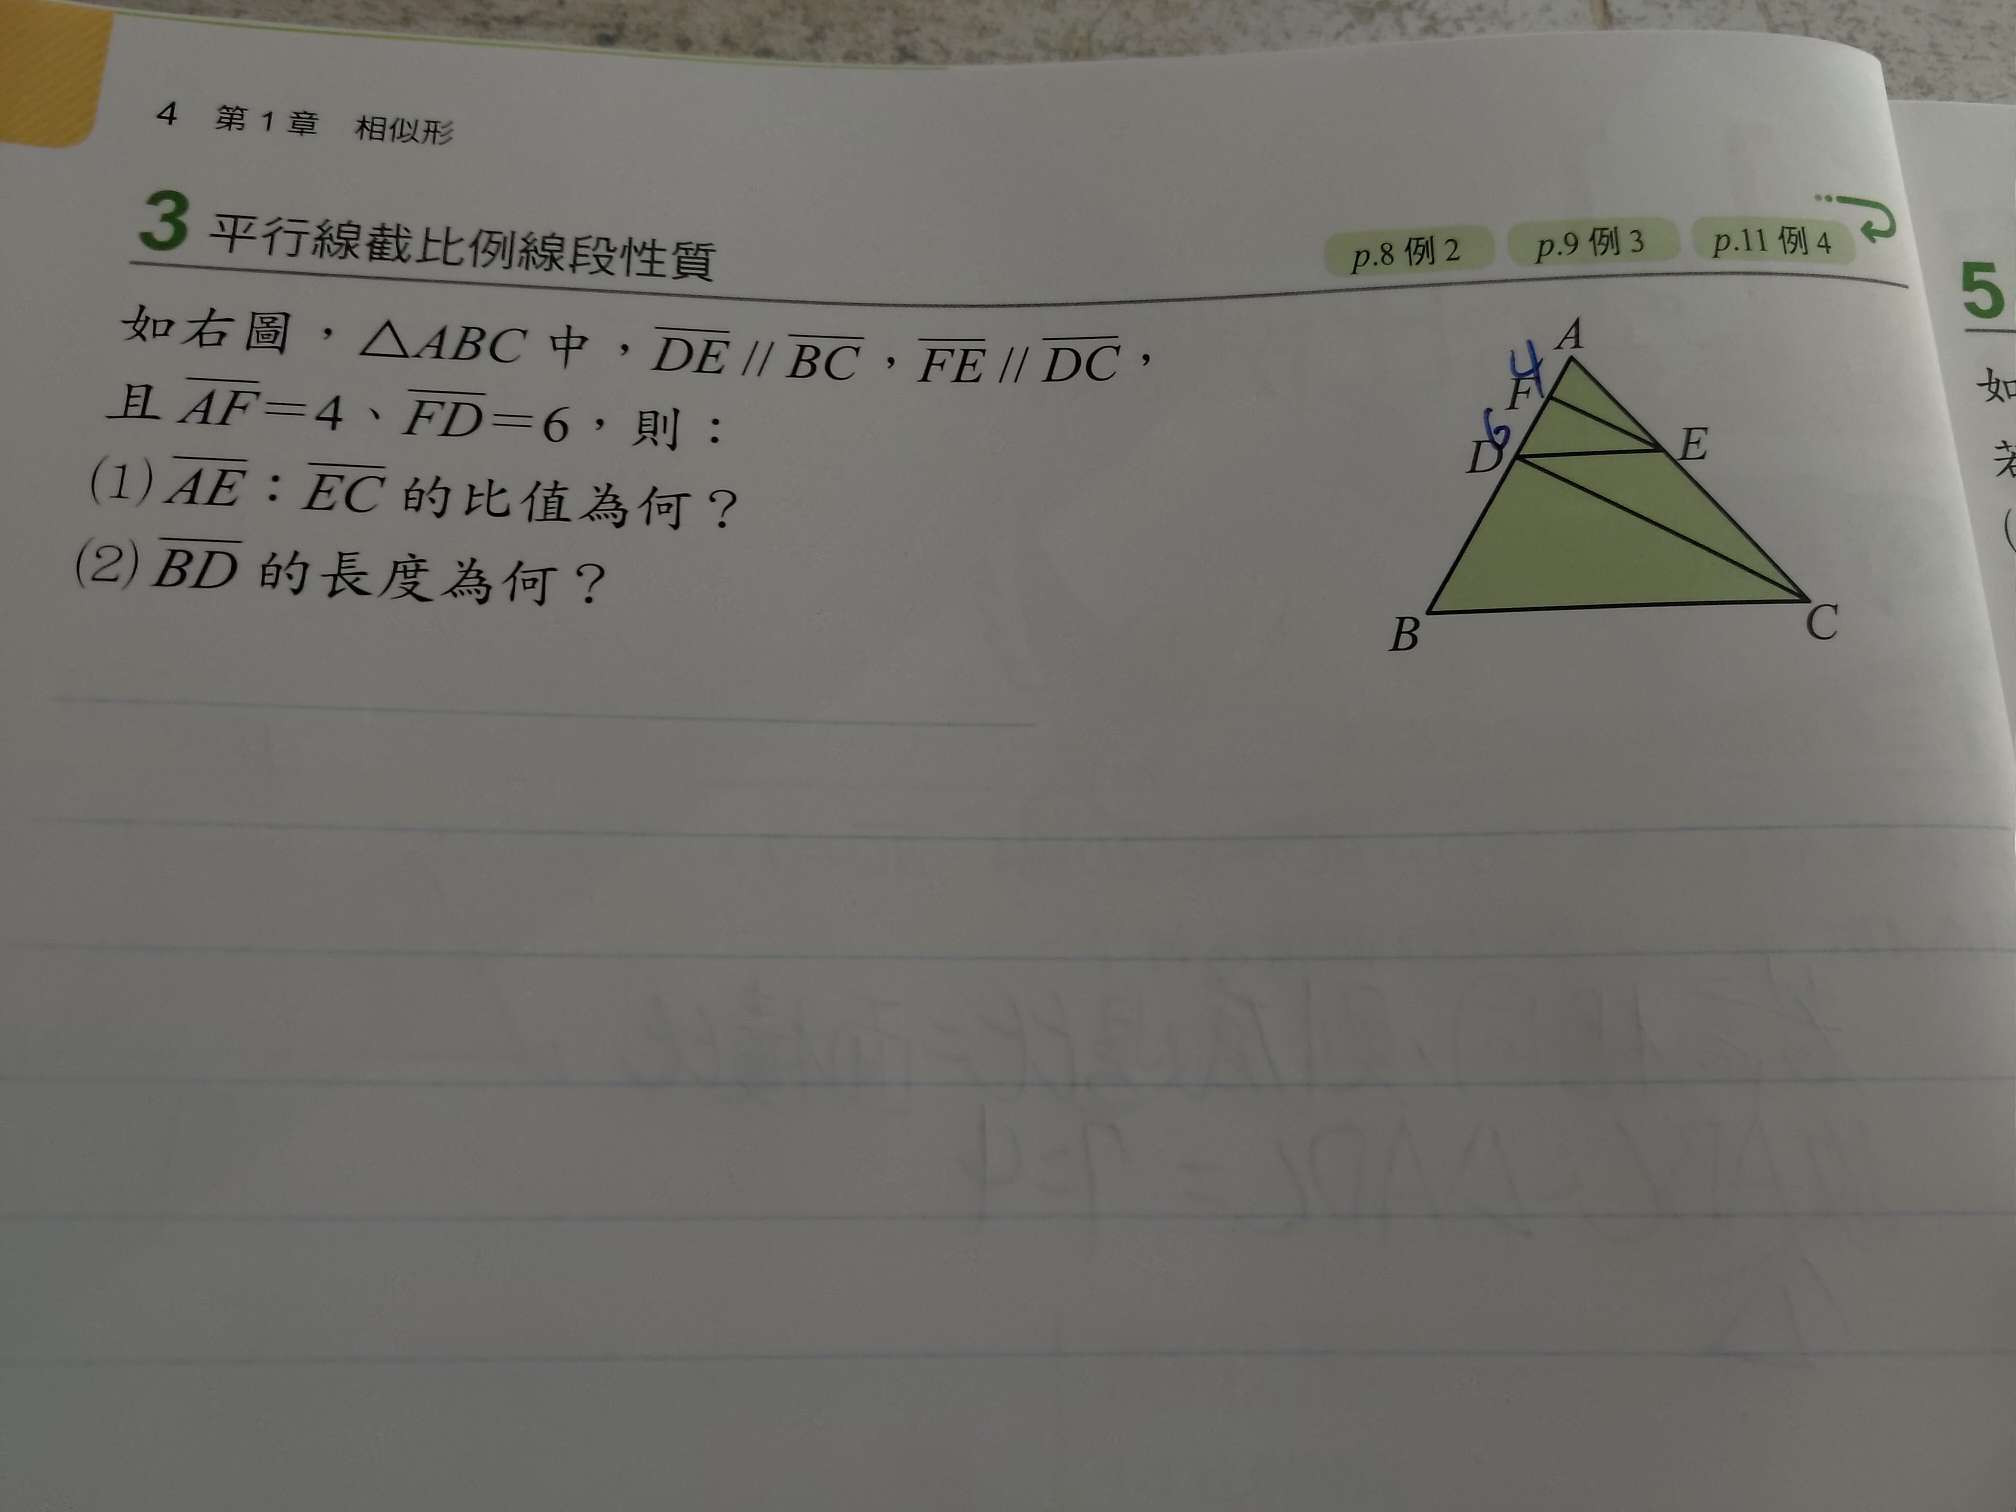 4 第1章 相似形
3 平行線截比例線段性質
p.8 例2 p.9 例3 p.11 例4
如右圖，△ABC 中，DE // BC，FE // DC，
且 AF＝4、FD＝6，則：
(1) AE：EC 的比值為何？
(2) BD 的長度為何？
A
4
F
6
D
E
B
C
5
如
若
(